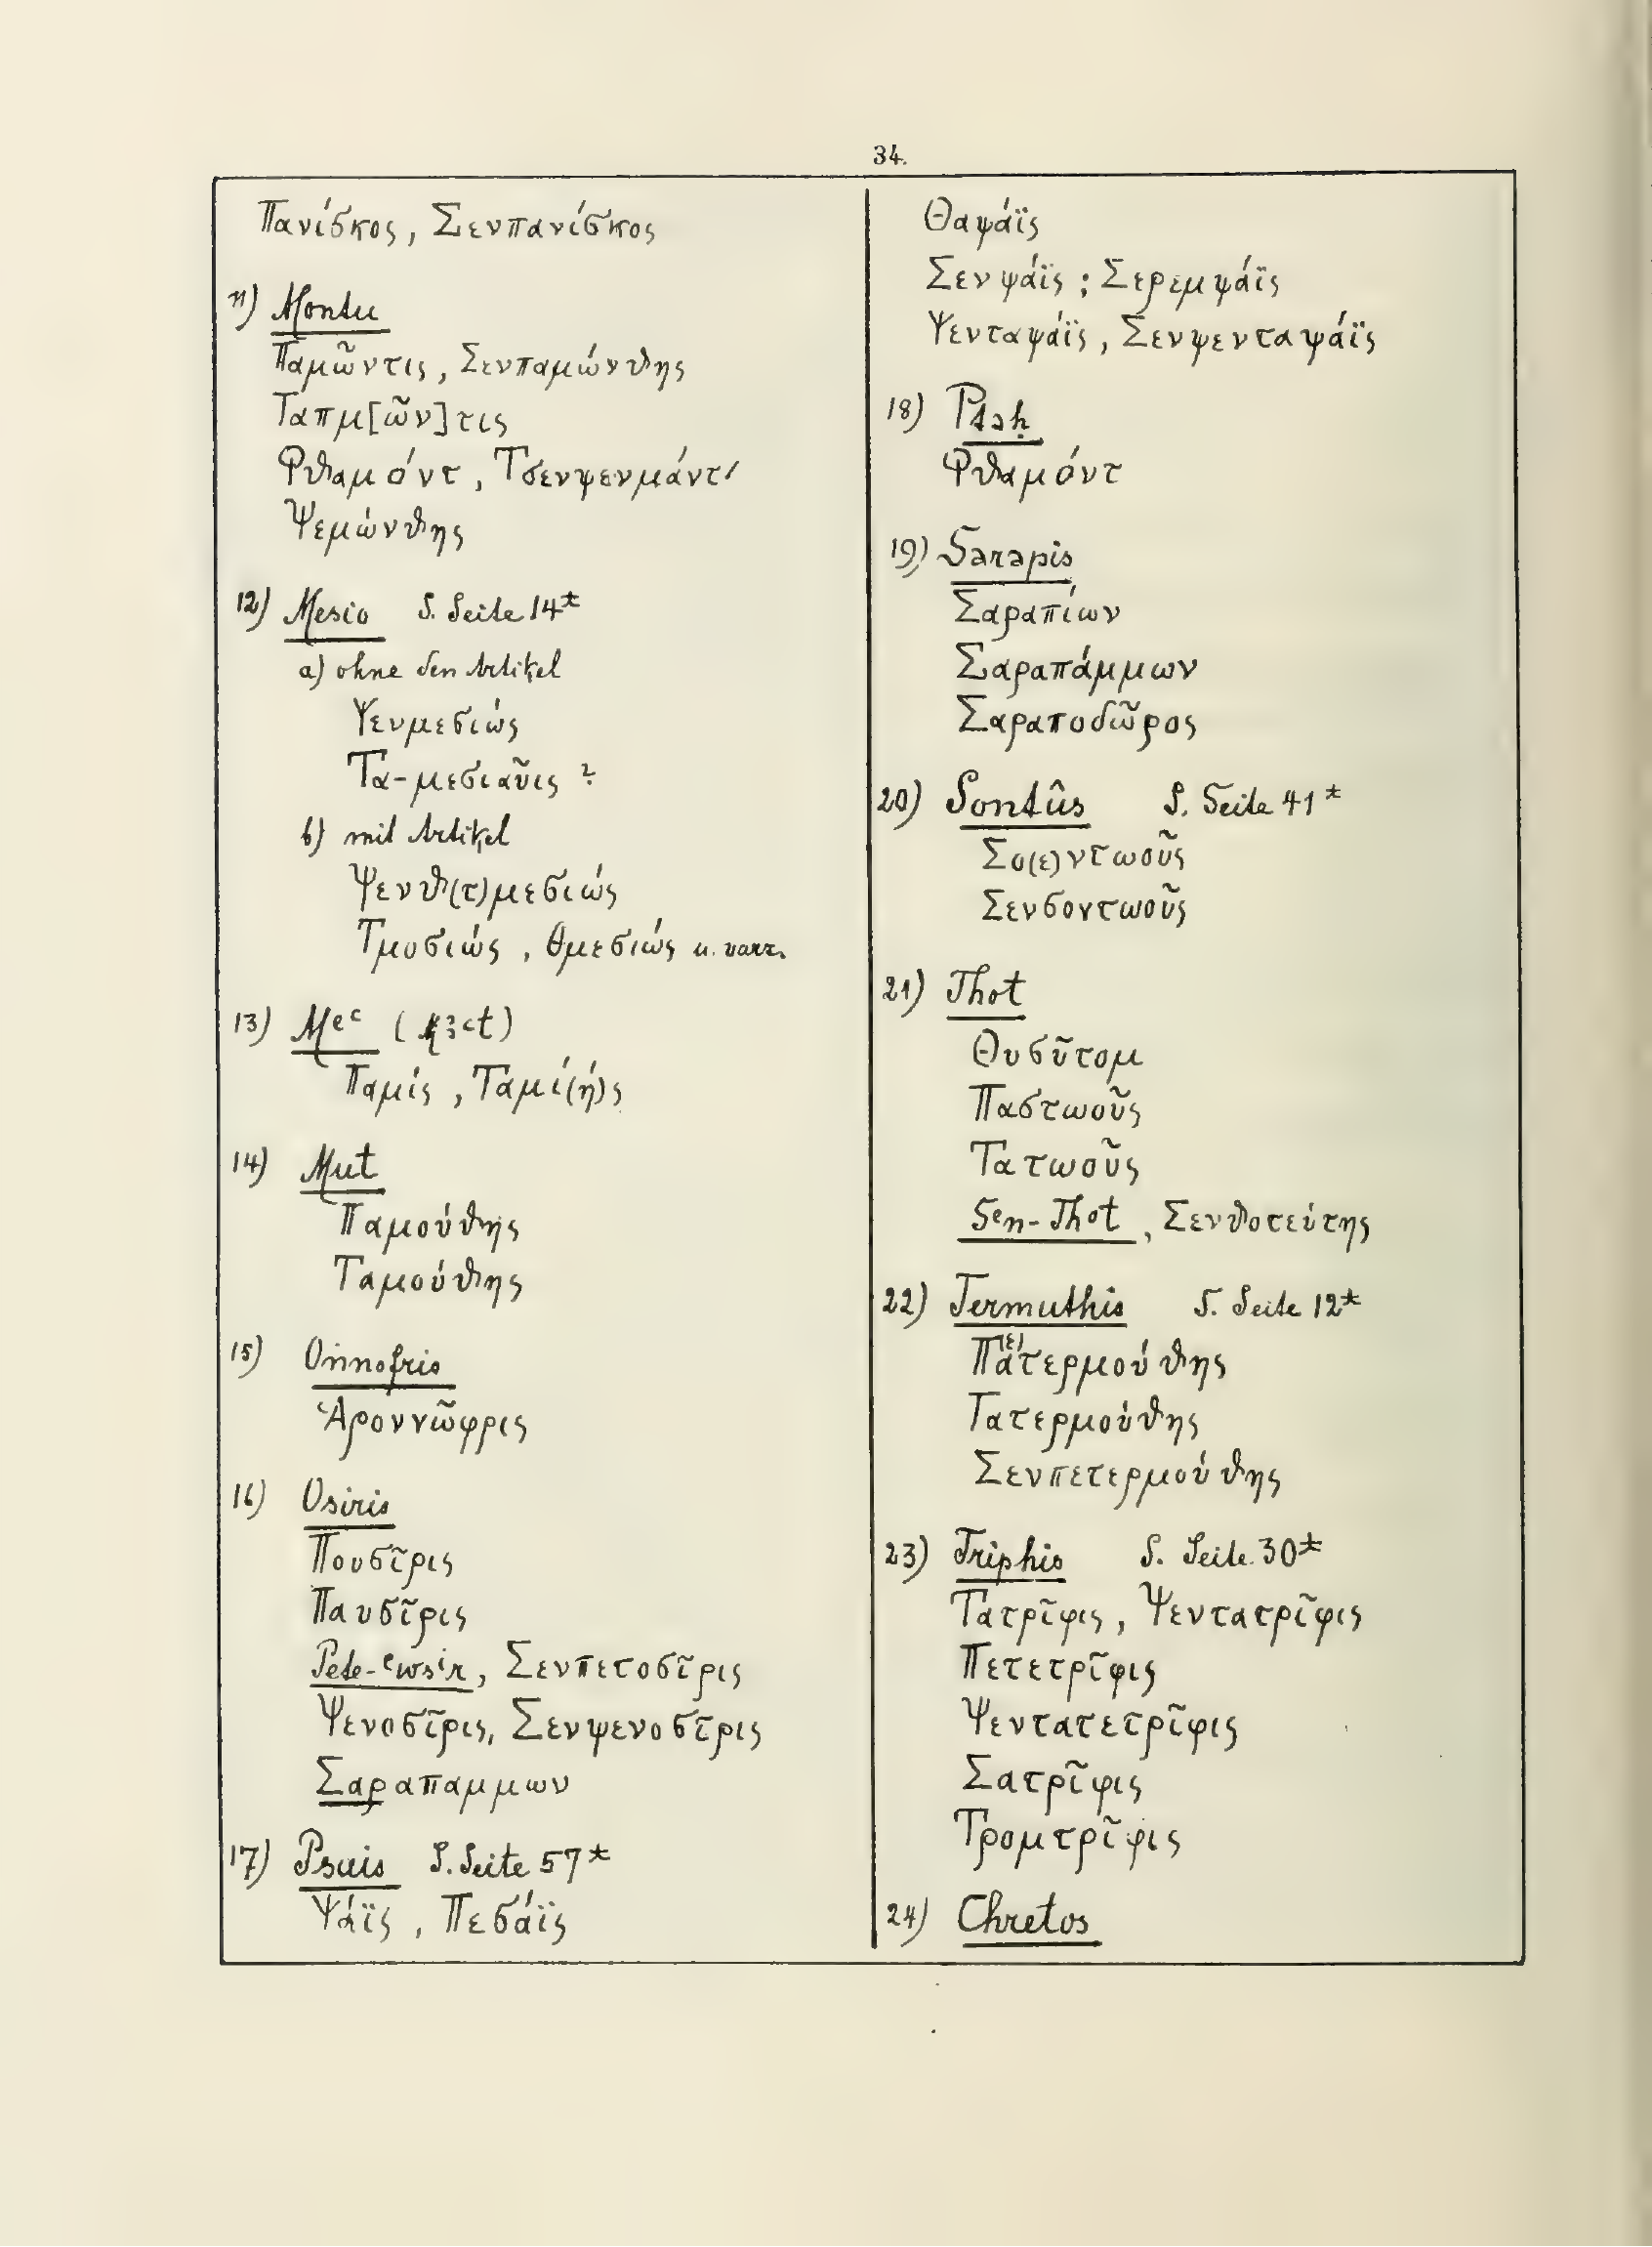 34.
Πανίσκος, Σενπανίσκος
11) Montu
Παμῶντις, Σενπαμώνθης
Ταπμ[ῶν]τις
Φθαμόντ, Τσενψενμάντ'
Ψεμώνθης
12) Mesio S. Seite 14*
a) ohne den Artikel
Ψενμεσιώς
Τα-μεσιαῦις ?
b) mit Artikel
Ψενθ(τ)μεσιώς
Τμοσιώς, Θμεσιώς u. varr.
13) Mec
Παμίς, Ταμί(ή)ς
14) Mut
Παμούθης
Ταμούθης
15) Onnofris
Ἁροννῶφρις
16) Osiris
Πουσῖρις
Παυσῖρις
Pete-ewsir, Σενπετοσῖρις
Ψενοσῖρις, Σενψενοσῖρις
Σαραπαμμων
17) Psais S. Seite 57*
Ψάϊς, Πεσάϊς
Θαψάϊς
Σενψάϊς; Σερεμψάϊς
Ψενταψάϊς, Σενψενταψάϊς
18) Ptaḥ
Φθαμόντ
19) Sarapis
Σαραπίων
Σαραπάμμων
Σαραποδῶρος
20) Sontûs S. Seite 41*
Σο(ε)ντωοῦς
Σενσοντωοῦς
21) Thot
Θυσῦτομ
Παστωοῦς
Τατωοῦς
Sen-Thot, Σενθοτεύτης
22) Termuthis S. Seite 12*
Πα(ε)τερμούθης
Τατερμούθης
Σενπετερμούθης
23) Triphis S. Seite 30*
Τατρῖφις, Ψεντατρῖφις
Πετετρῖφις
Ψεντατετρῖφις
Σατρῖφις
Τρομτρῖφις
24) Chretos